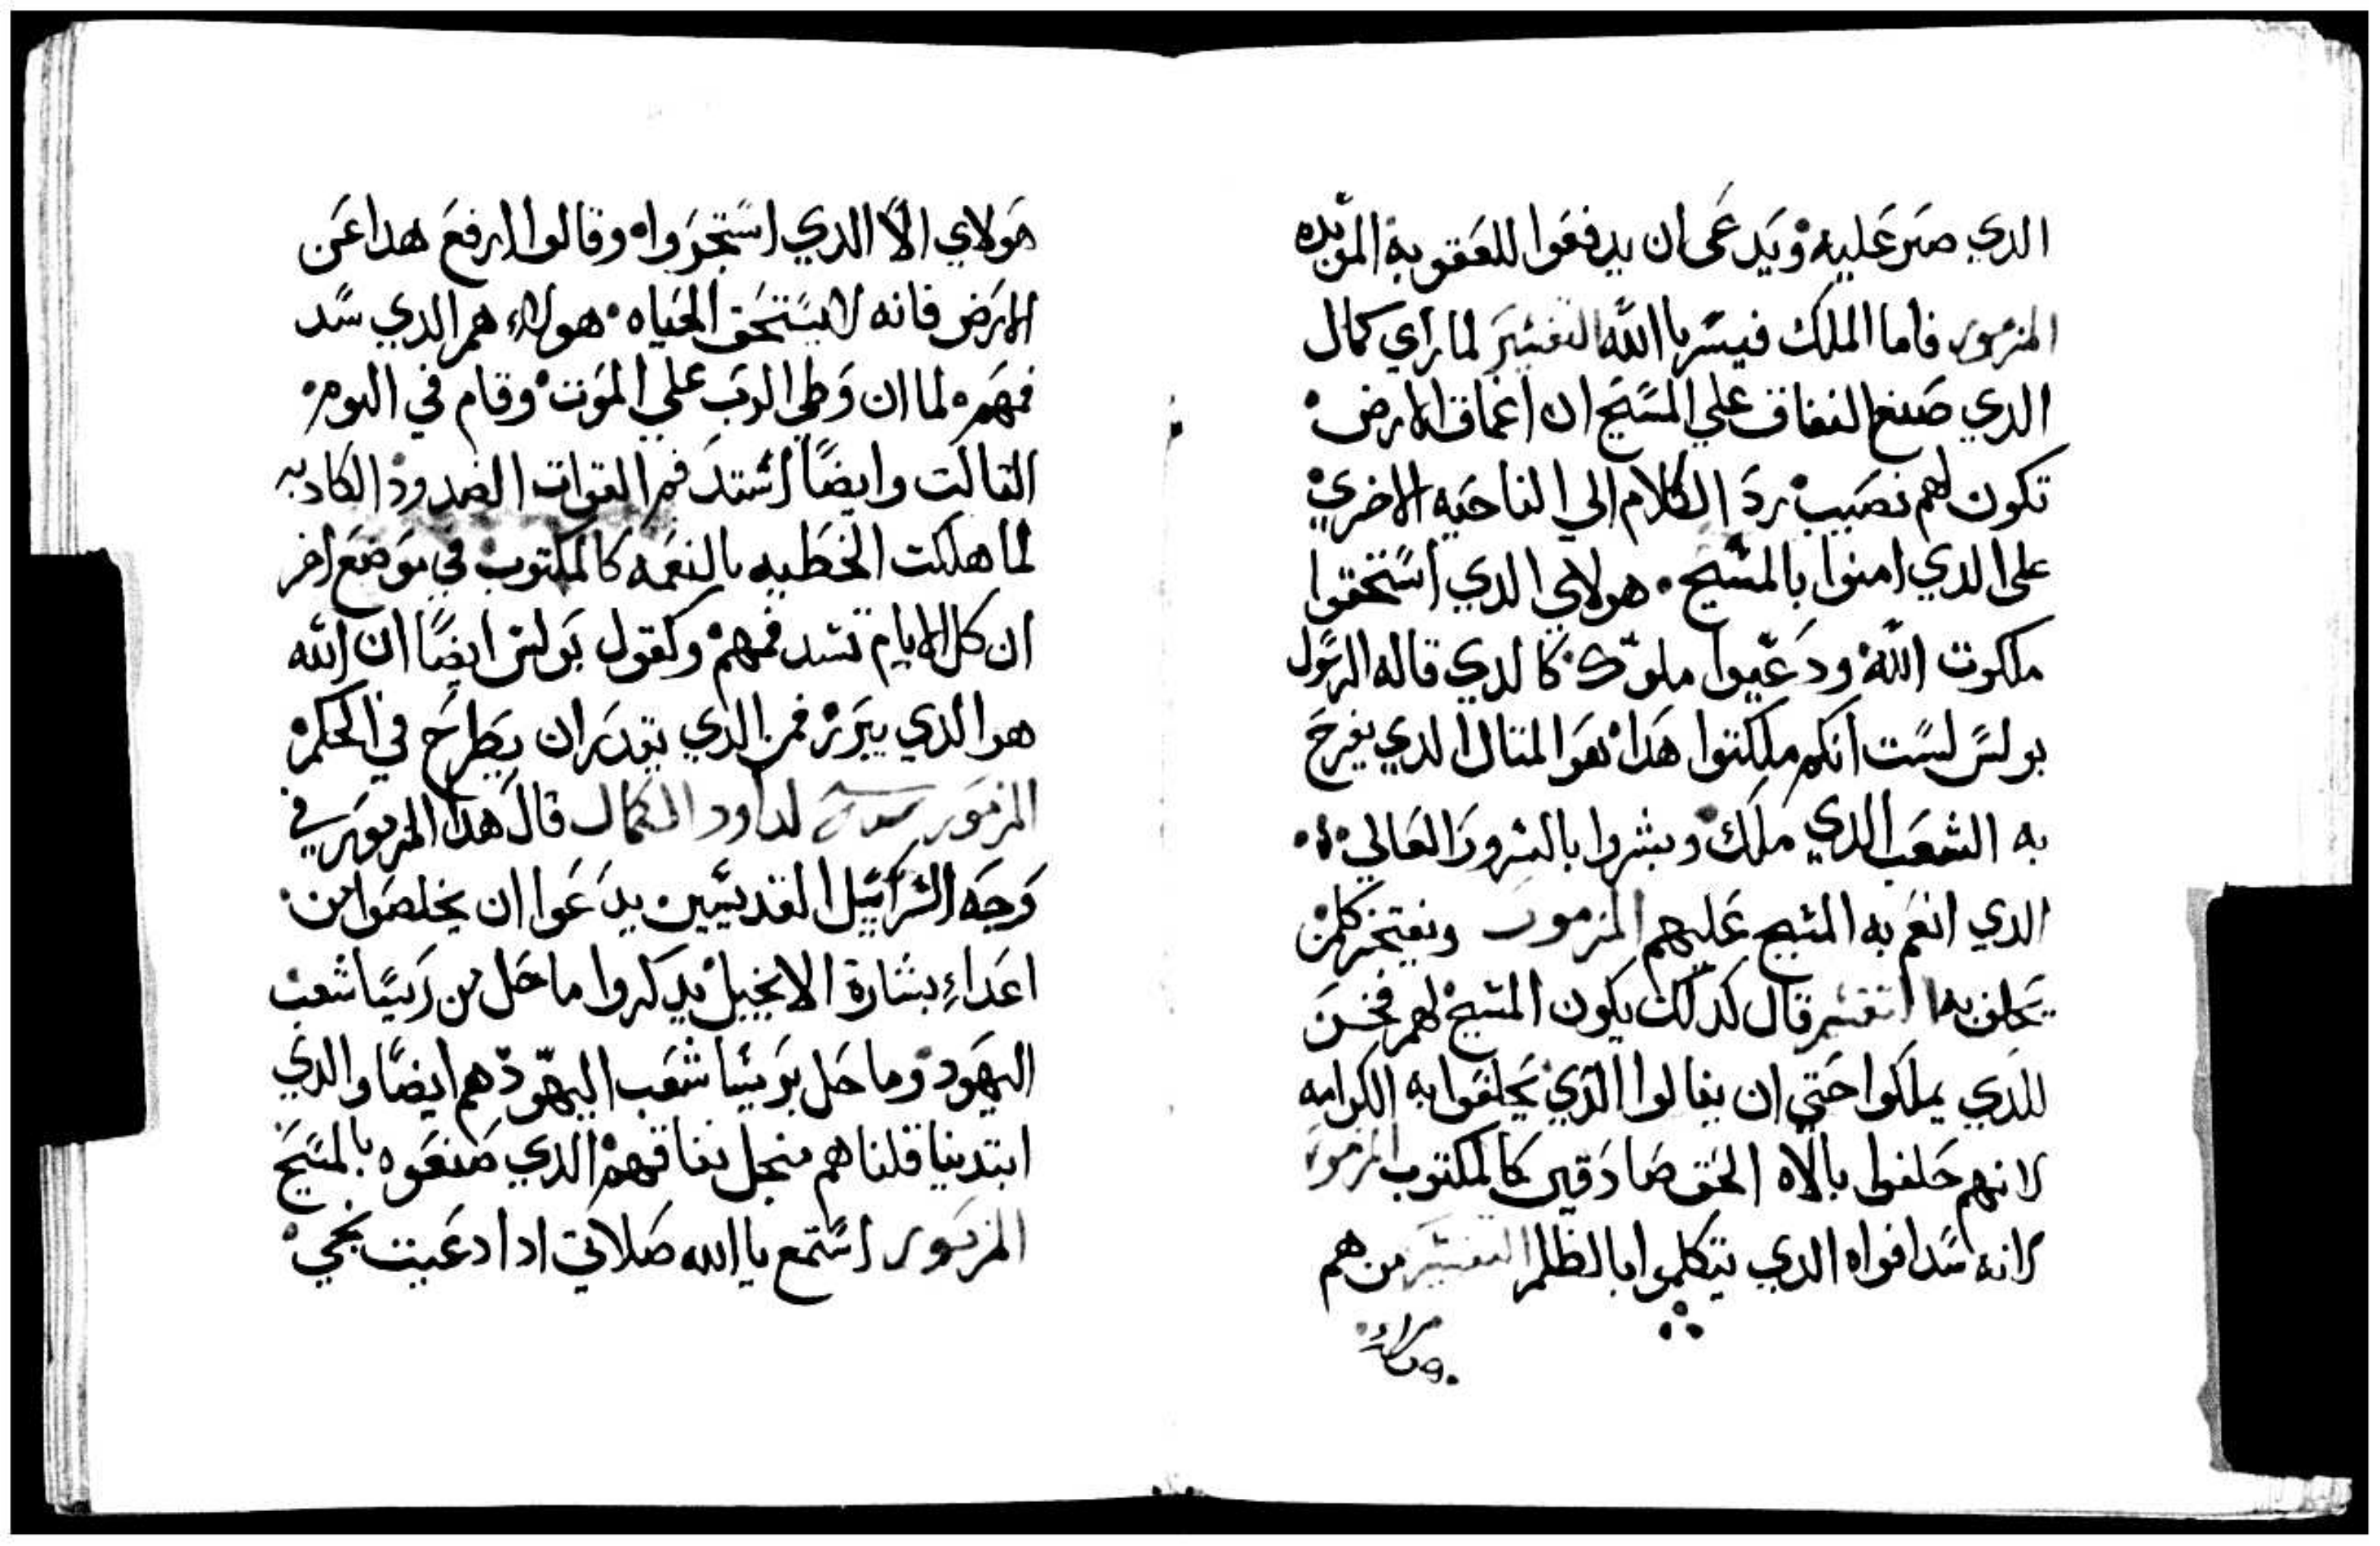 الدي صبر عليه ويدعى ان يدفعوا للعقوبة الموبده
المزمور فاما الملك فيسر بالله التفسير لما راي كمال
الدي صنع النفاق علي المسيح ان اعماق الارض
تكون لهم نصيب رد الكلام الي الناحيه الاخري
على الدي امنوا بالمسيح هولاي الدي استحقوا
ملكوت الله ودعيوا ملوك كالدي قاله الرسول
بولس لست انكم ملكتوا هدا هو المتال الدي يفرح
به الشعب الدي ملك وبشروا بالسرور العالي
الدي انعم به المسيح عليهم المزمور ويفتخر كلمن
يحلف به التفسير قال كدلك يكون المسيح لهم فخر
للدي يملكوا حتي ان ينالوا الدي يحلفوا به الكرامه
لانهم حلفوا بالاه الحق صادقين كالمكتوب المزمور
لانه سد افواه الدي يتكلموا بالظلم التفسير من هم
هولاي الا الدي استجروا وقالوا ارفع هدا عن
الارض فانه لا يستحق الحياه هولاء هم الدي سد
فمهم لما ان وطي الرب علي الموت وقام في اليوم
التالت وايضا اشتد فم القوات الضدود الكادبه
لما هلكت الخطيه بالنعمه كالمكتوب في موضع اخر
ان كل الايام تسد فمهم وكقول بولس ايضا ان الله
هو الدي يبرر فمن الدي يقدر ان يطرح في الحكم
المزمور لداود الكمال قال هدا المزمور في
وجه اسرائيل القديسين يدعوا ان يخلصوا من
اعداء بشارة الانجيل يدكروا ما حل من ريسا شعب
اليهود وما حل بريسا شعب اليهود هم ايضا والدي
ابتدينا قلناهم منجل نفاقهم الدي صنعوه بالمسيح
المزمور استمع يا الله صلاتي ادا دعيت نجي